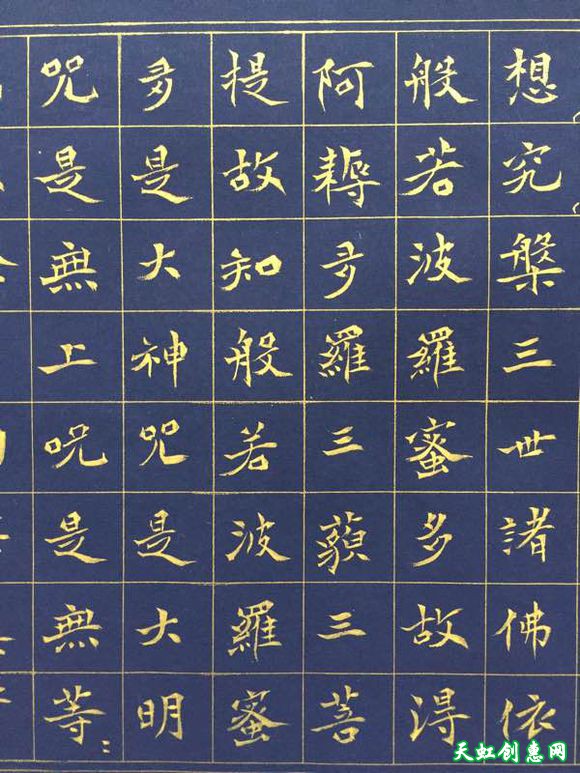 想究槃三世諸佛依
般若波羅蜜多故得
阿耨多羅三藐三菩
提故知般若波羅蜜
多是大神咒是大明
咒是無上呪是無等〻
天虹创惠网